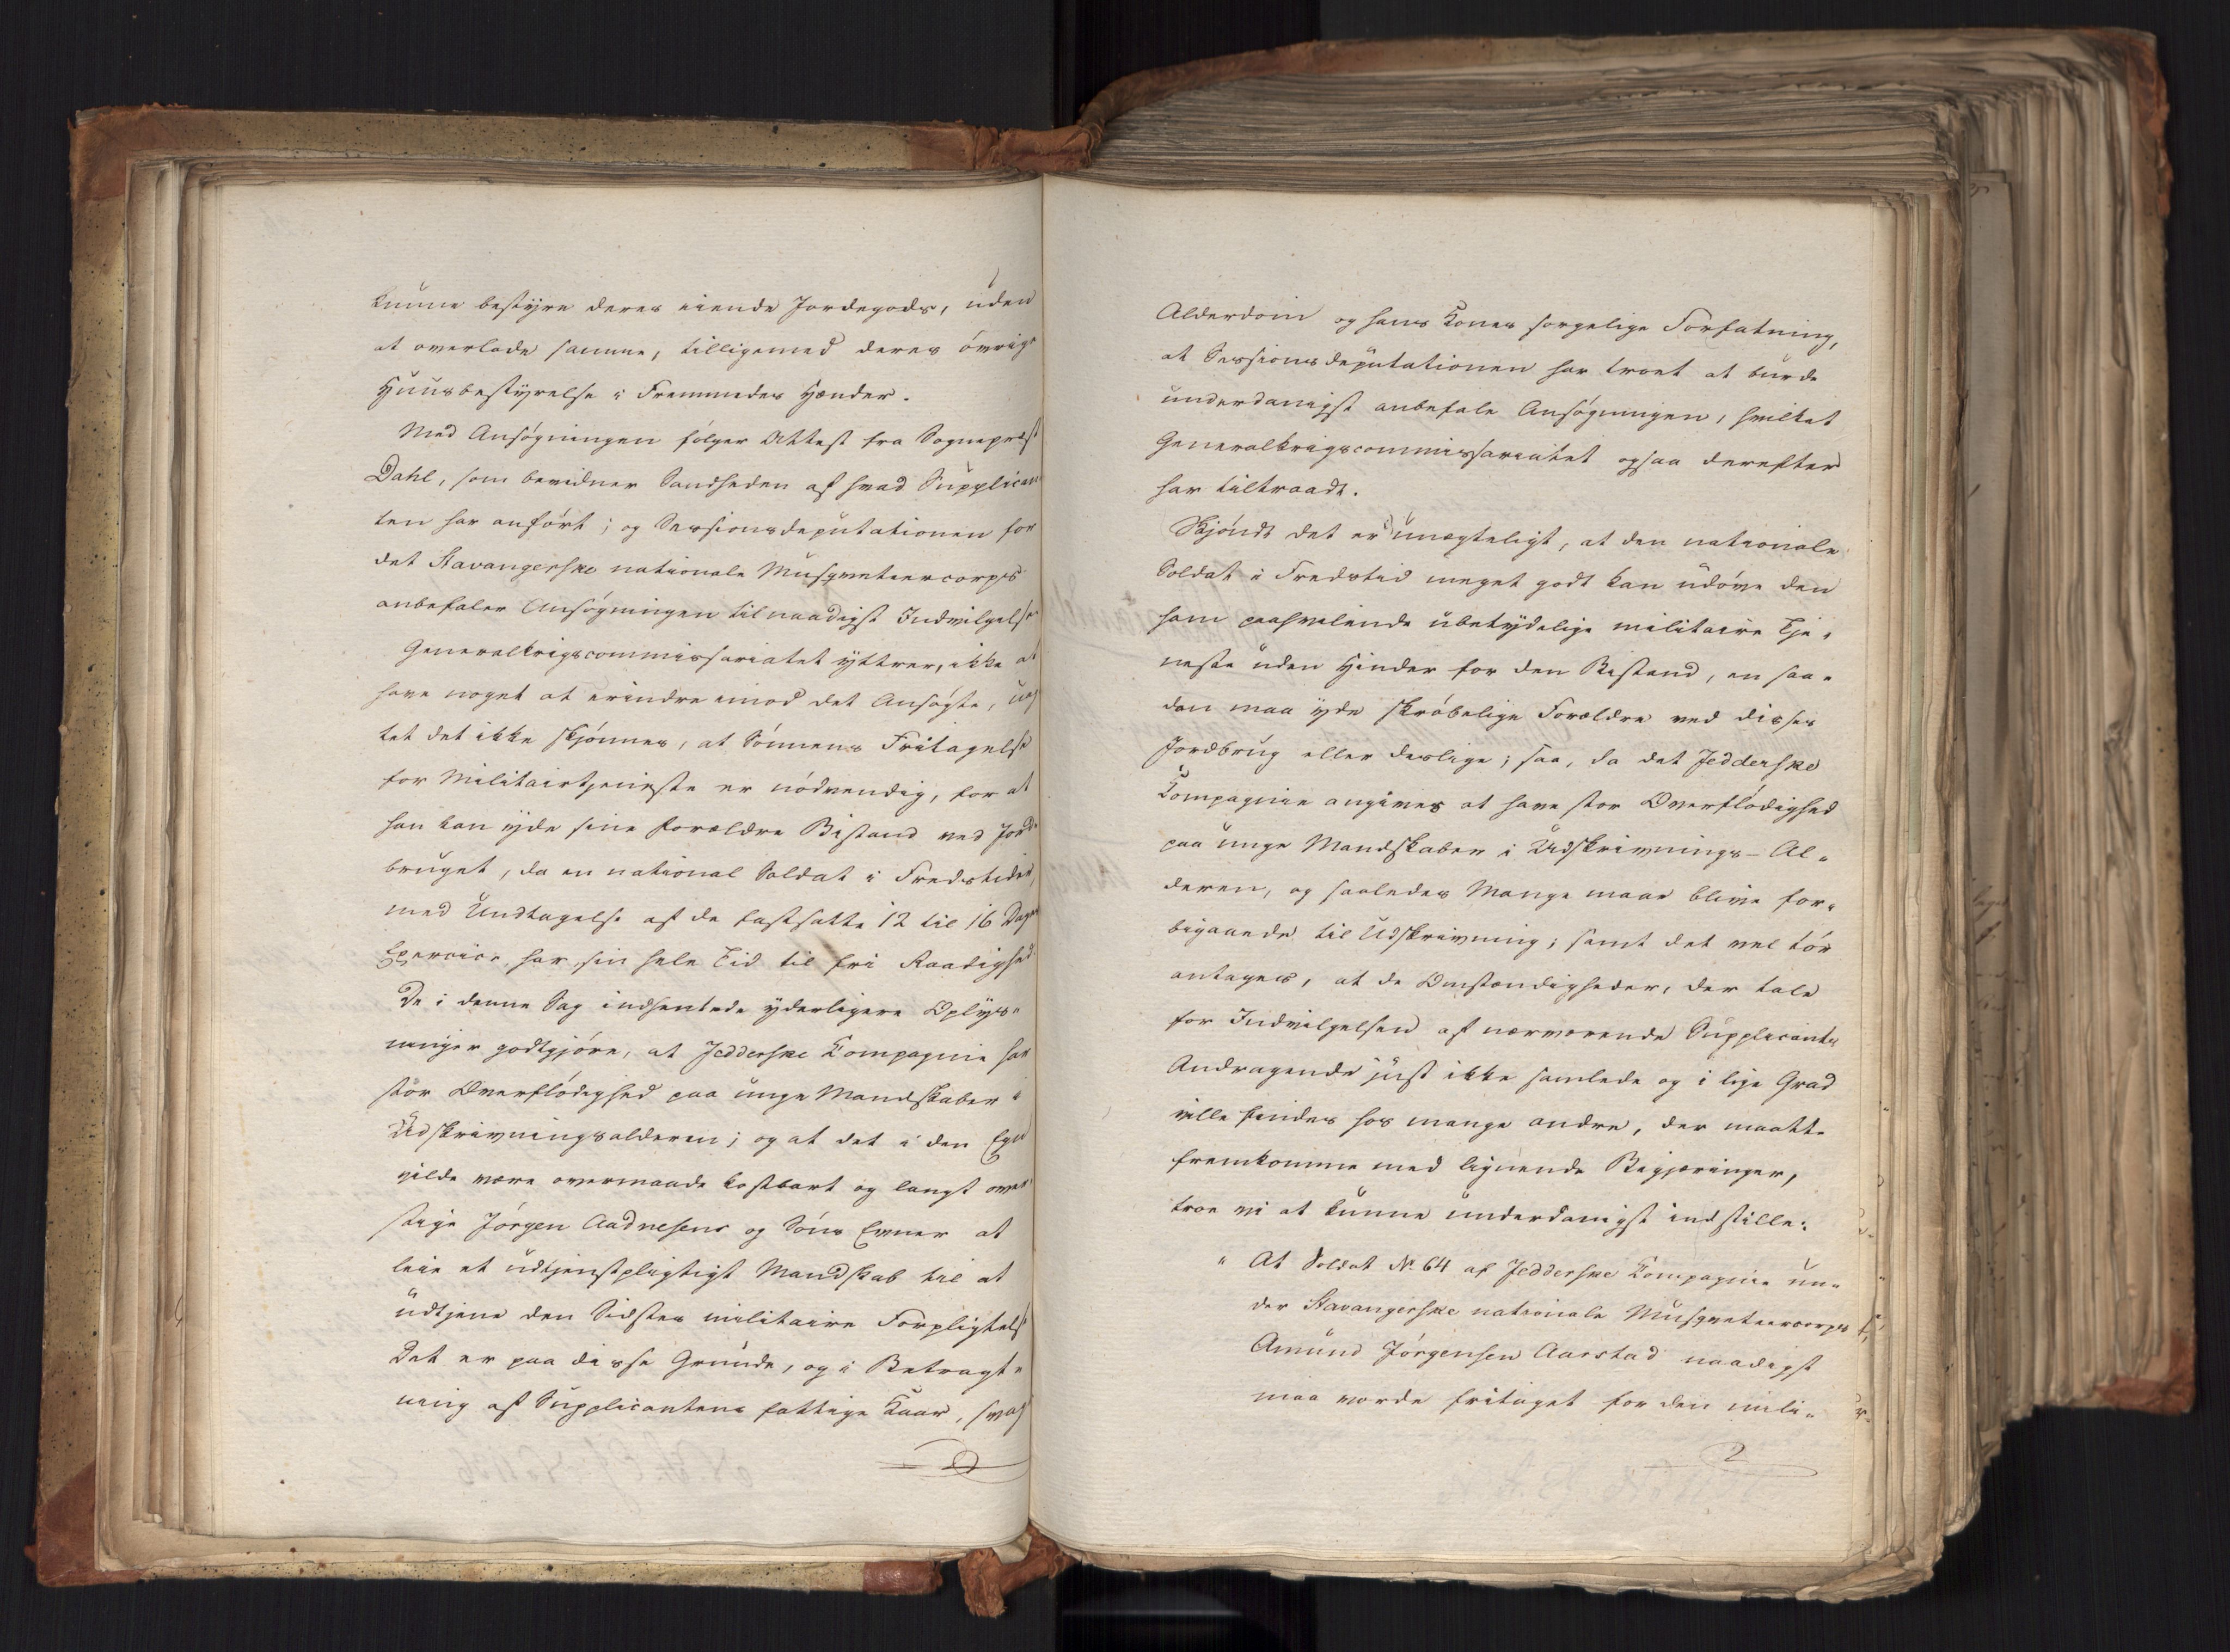 kunne bestyre deres eiende Jordegods, uden
at overlade samme, tilligemed deres øvrige
Huusbestyrelse i Fremmedes Hænder.
Med Ansøgningen følger Attest fra Sognepræst
Dahl, som bevidner Sandheden af hvad Supplican-
ten har anført; og Sessionsdeputationen for
det Stavangerske nationale Musqueteercorps
anbefaler Ansøgningen til naadigst Indvilgelse
Generalkrigscommissariatet yttrer, ikke at
have noget at erindre imod det Ansøgte, uag
tet det ikke skjønnes, at Sønnens Fritagelse
for Militairtjeneste er nødvendig, for at
han kan yde sine Forældre Bistand ved Jord-
bruget, da en national Soldat i Fredstider,
med Undtagelse af de fastsatte 12 til 16 Dages
Exercice, har sin hele Tid til fri Raadighed.
De i denne Sag indhentede yderligere Oplys-
ninger godtgjøre, at Jedderske Kompagnie har
stor Overflødighed paa unge Mandskaber i
Udskrivningsalderen; og at det i den Egn
vilde være overmaade kostbart og langt over
stige Jørgen Aadnesens og Søns Evner at
leie et udtjenstpligtigt Mandskab til at
udtjene den Sidstes militaire Forpligtelse
Det er paa disse Grunde, og i Betragt-
ning af Supplicantens fattige Kaar, svag
Alderdom og hans Kones sørgelige Forfatning,
at Sessionsdeputationen har troet at burde
underdanigst anbefale Ansøgningen, hvilket
Generalkrigscommissariatet ogsaa derefter
har tiltraadt.
Skjøndt det er unægteligt, at den nationale
Soldat i Fredstid meget godt kan udøve den
ham paahvilende ubetydelige militaire Tje-
neste uden Hinder for den Bistand, en saa-
dan maa yde skrøbelige Forældre ved disses
Jordbrug eller deslige; saa, da det Jedderske
Kompagnie angives at have stor Overflødighed
paa unge Mandskaber i Udskrivnings-Al-
deren, og saaledes Mange maae blive for-
bigaaede til Udskrivning; samt det vel tør
antages, at de Omstændigheder, der tale
for Indvilgelsen af nærværende Supplicants
Andragende just ikke samlede og i lige Grad
ville findes hos mange andre, der maatte
fremkomme med lignende Begjæringer,
troe vi at kunne underdanigst indstille:
" At Soldat No. 64 af Jedderske Kompagnie un-
der Stavangerske nationale Musqueteercorps
Amund Jørgensen Aarstad naadigst
maa vorde fritaget for den mili-